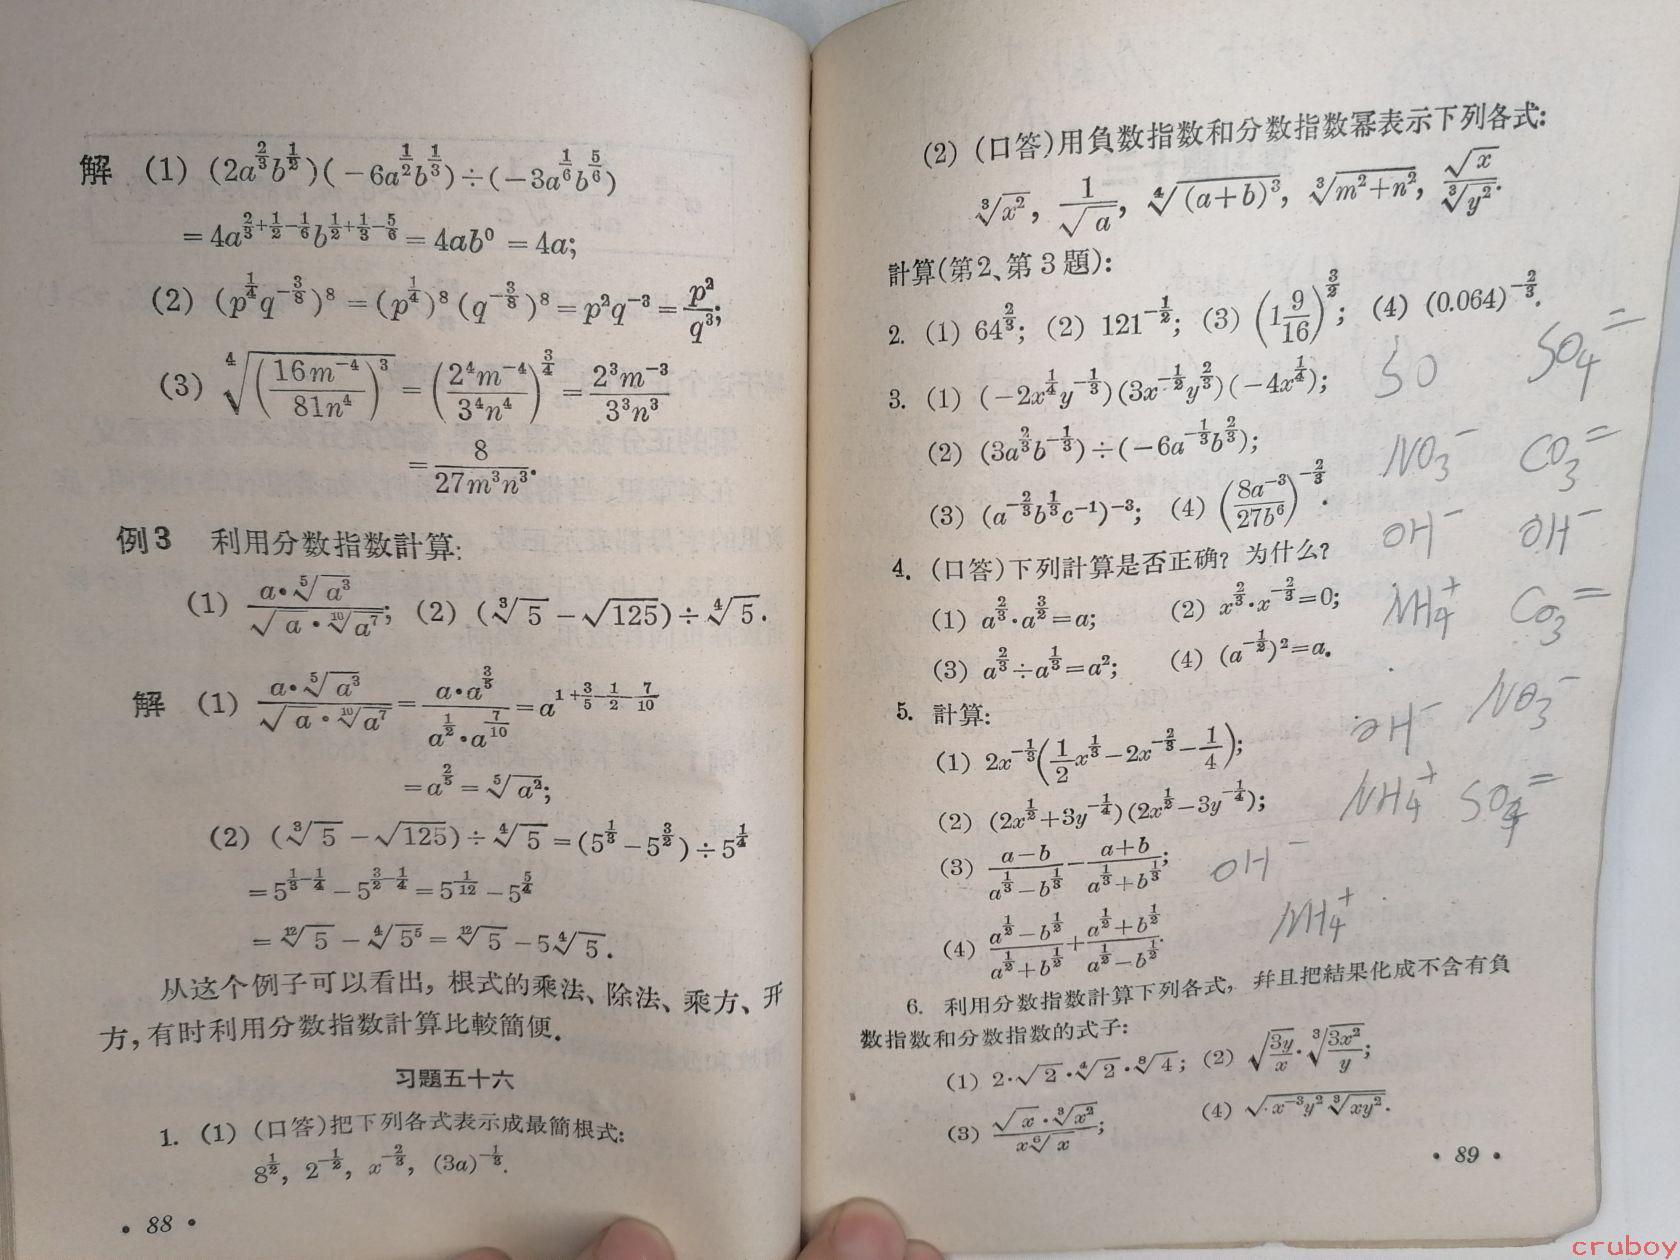 解 (1) (2a^{2/3}b^{1/2})(-6a^{1/2}b^{1/3})÷(-3a^{1/6}b^{5/6})
=4a^{2/3+1/2-1/6}b^{1/2+1/3-5/6}=4ab⁰=4a;
(2) (p^{1/4}q^{-3/8})⁸=(p^{1/4})⁸(q^{-3/8})⁸=p²q⁻³=p²/q³;
(3) ⁴√((16m⁻⁴/81n⁴)³)=(2⁴m⁻⁴/3⁴n⁴)^{3/4}=2³m⁻³/3³n³
=8/27m³n³.
例3 利用分数指数計算:
(1) a·⁵√a³/√a·¹⁰√a⁷; (2) (³√5-√125)÷⁴√5.
解 (1) a·⁵√a³/√a·¹⁰√a⁷=a·a^{3/5}/a^{1/2}·a^{7/10}=a^{1+3/5-1/2-7/10}
=a^{2/5}=⁵√a²;
(2) (³√5-√125)÷⁴√5=(5^{1/3}-5^{3/2})÷5^{1/4}
=5^{1/3-1/4}-5^{3/2-1/4}=5^{1/12}-5^{5/4}
=¹²√5-⁴√5⁵=¹²√5-5⁴√5.
从这个例子可以看出,根式的乘法、除法、乘方、开
方,有时利用分数指数計算比較簡便.
习題五十六
1. (1) (口答)把下列各式表示成最簡根式:
8^{1/2}, 2^{-1/2}, x^{-2/3}, (3a)^{-1/3}.
• 88 •
(2) (口答)用負数指数和分数指数冪表示下列各式:
³√x², 1/√a, ⁴√(a+b)³, ³√m²+n², √x/³√y².
計算(第2、第3題):
2. (1) 64^{2/3}; (2) 121^{-1/2}; (3) (1 9/16)^{3/2}; (4) (0.064)^{-2/3}.
SO SO₄⁼
3. (1) (-2x^{1/4}y^{-1/3})(3x^{-1/2}y^{2/3})(-4x^{1/4});
(2) (3a^{2/3}b^{-1/3})÷(-6a^{-1/3}b^{2/3});
NO₃⁻ CO₃⁼
(3) (a^{-2/3}b^{1/3}c⁻¹)⁻³; (4) (8a⁻³/27b⁶)^{-2/3}.
OH⁻ OH⁻
4. (口答)下列計算是否正确? 为什么?
(1) a^{2/3}·a^{3/2}=a; (2) x^{2/3}·x^{-2/3}=0;
NH₄⁺ CO₃⁼
(3) a^{2/3}÷a^{1/3}=a²; (4) (a^{-1/2})²=a.
5. 計算:
OH⁻ NO₃⁻
(1) 2x^{-1/3}(1/2x^{1/3}-2x^{-2/3}-1/4);
(2) (2x^{1/2}+3y^{-1/4})(2x^{1/2}-3y^{-1/4});
NH₄⁺ SO₄⁼
(3) a-b/a^{1/3}-b^{1/3}-a+b/a^{1/3}+b^{1/3};
OH⁻
(4) a^{1/2}-b^{1/2}/a^{1/2}+b^{1/2}+a^{1/2}+b^{1/2}/a^{1/2}-b^{1/2}.
NH₄⁺
6. 利用分数指数計算下列各式, 幷且把結果化成不含有負
数指数和分数指数的式子:
(1) 2·√2·⁴√2·⁸√4; (2) √3y/x·³√3x²/y;
(3) √x·³√x²/x⁶√x; (4) √x⁻³y²³√xy².
• 89 •
cruboy